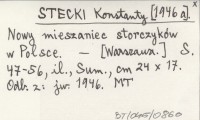 STECKI Konstanty [1946 a].
Nowy mieszaniec storczyków
w Polsce. — [Warszawa.] S.
47-56, il., Sum., cm 24 x 17.
Odb. z: jw. 1946. MT
BT/045/0860